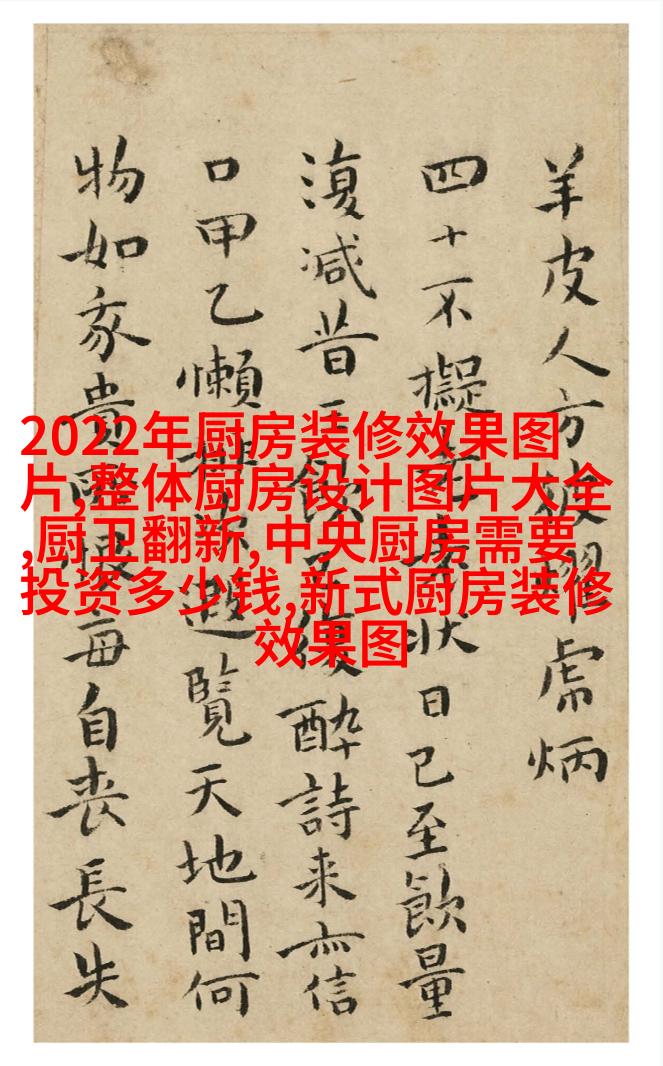 羊皮人方被耀虎炳
四十不擬狀日已至飲量
復減昔飲復醉詩来亦信
口甲乙懶遐覽天地間何
物如豕貴每自丧長失
2022年厨房装修效果图
片,整体厨房设计图片大全
,厨卫翻新,中央厨房需要
投资多少钱,新式厨房装修
效果图